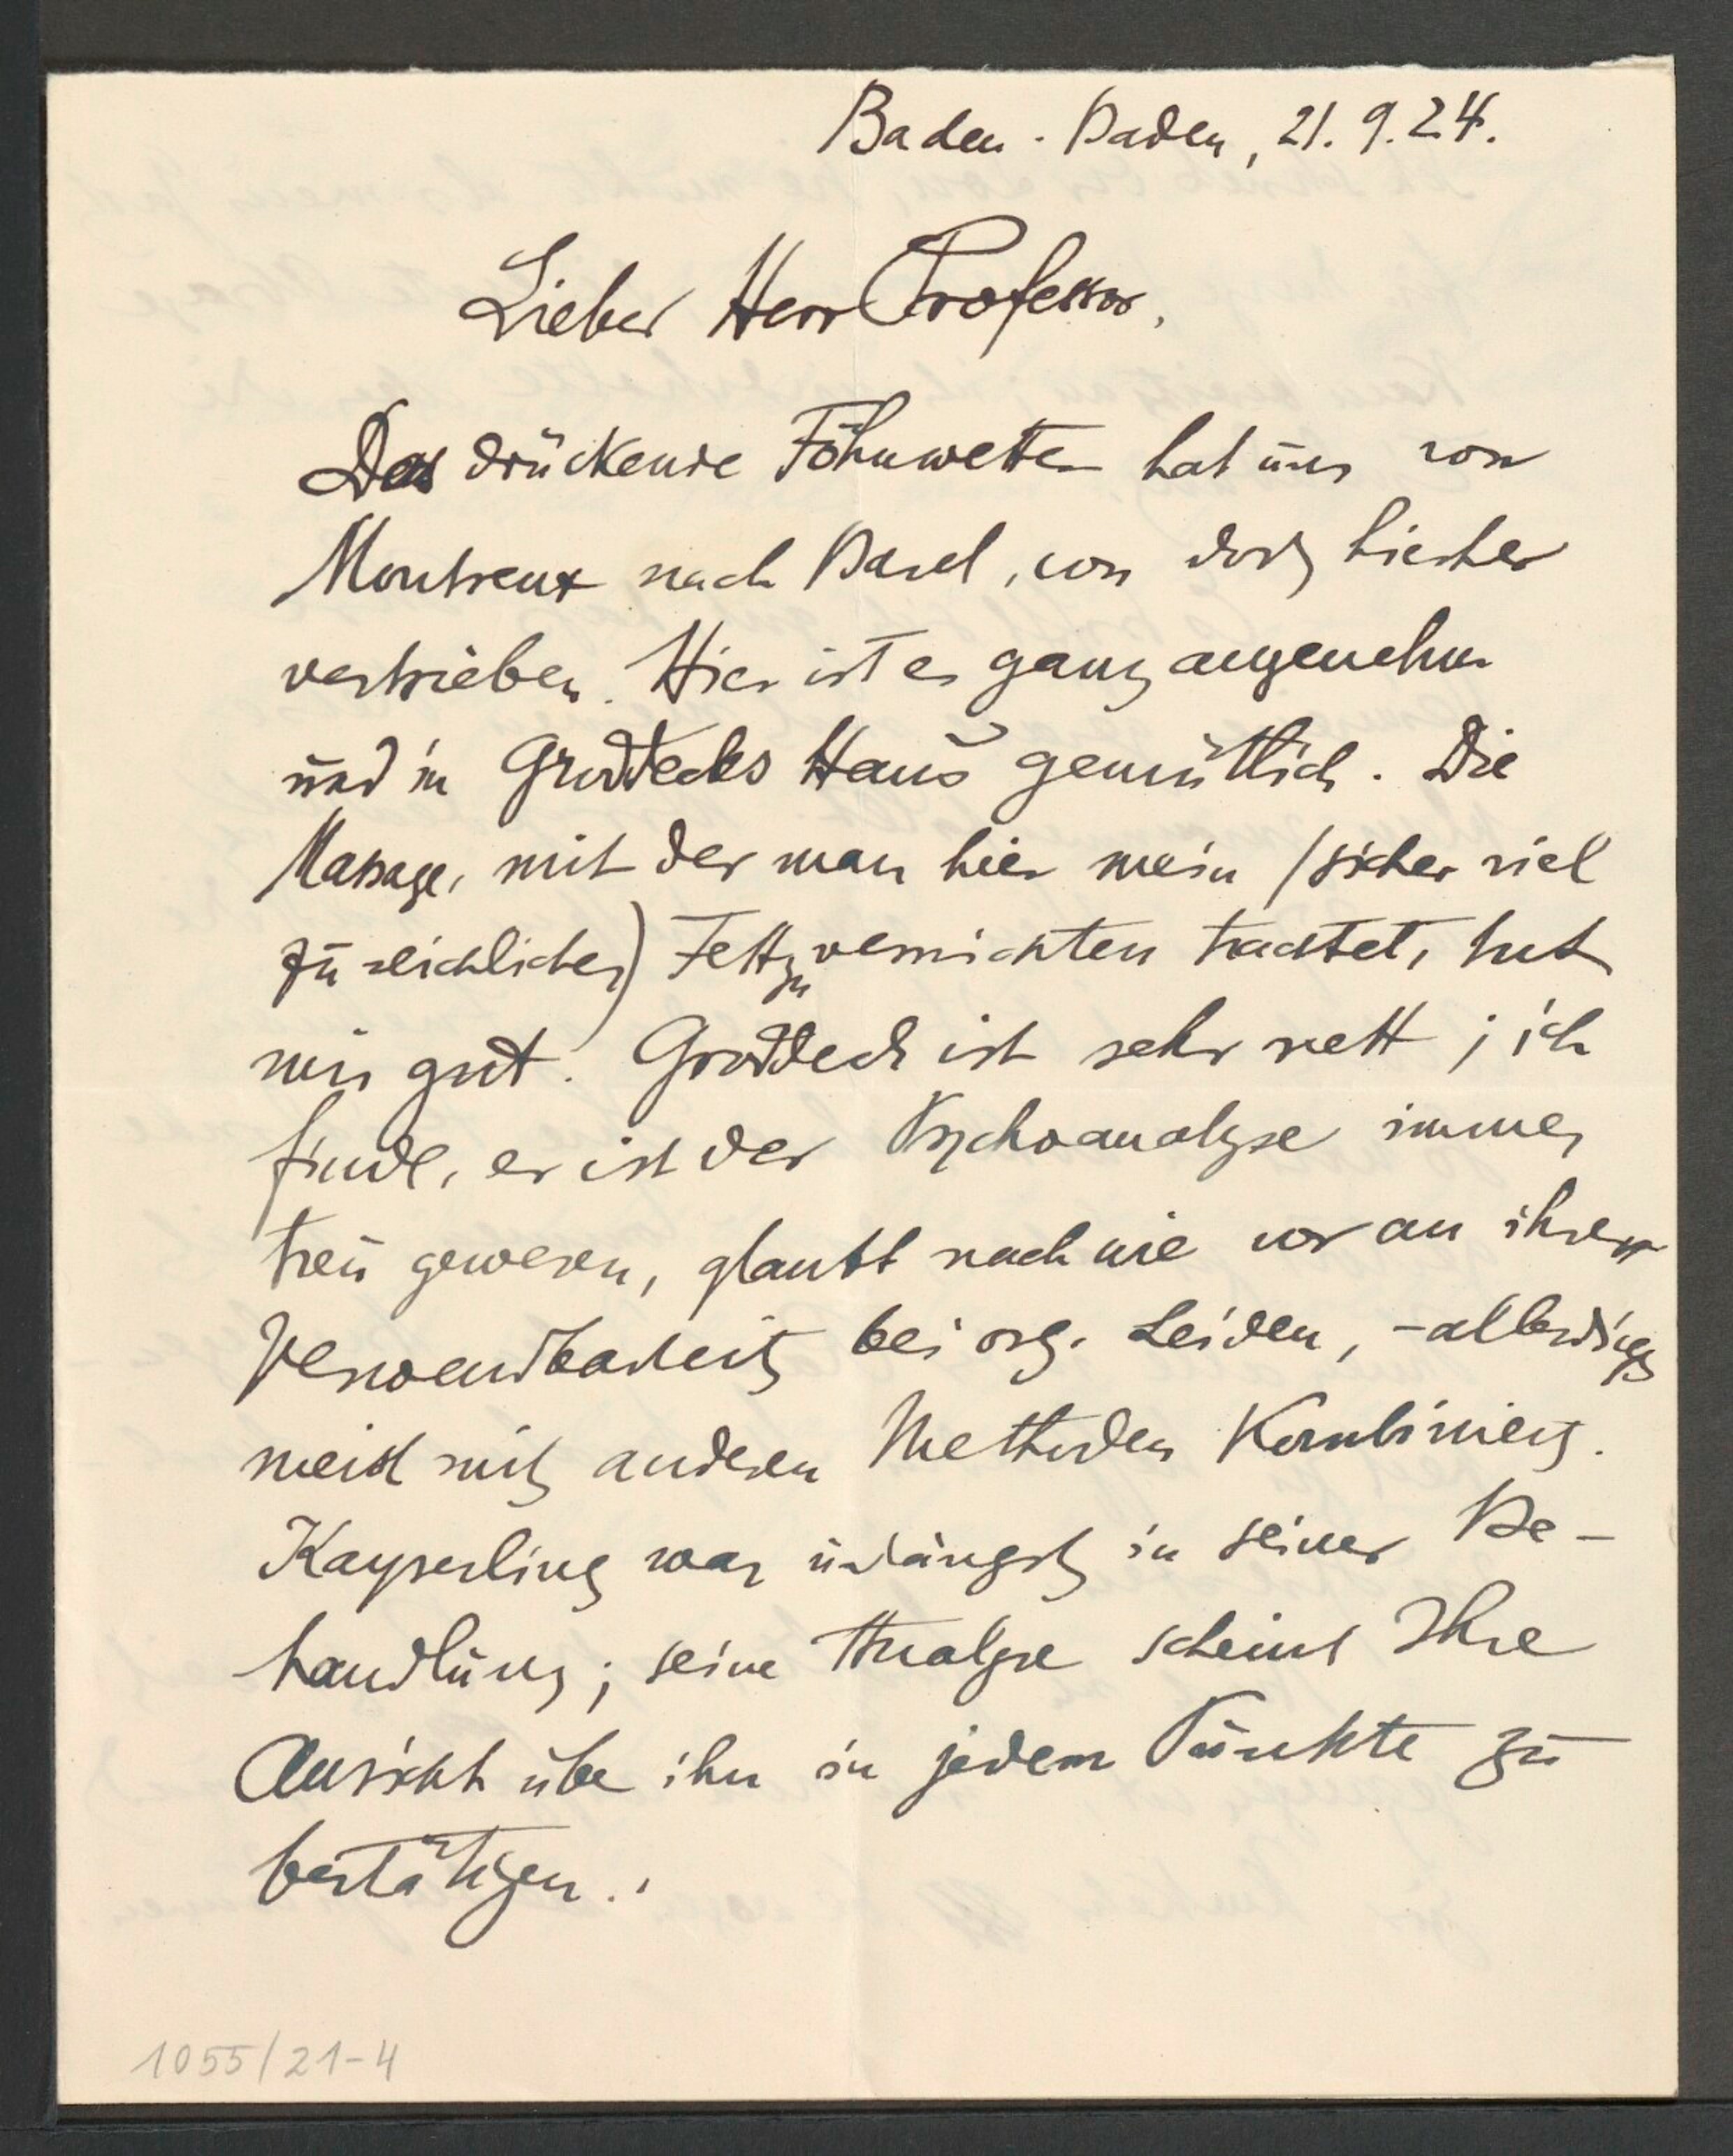 Baden-Baden, 21.9.24.
Lieber Herr Professor,
Das drückende Föhnwetter hat uns von
Montreux nach Basel, von dort hierher
vertrieben. Hier ist es ganz angenehm
und in Groddecks Haus gemütlich. Die
Massage, mit der man hier mein (sicher viel
zu reichliches) Fett zu vernichten trachtet, tut
mir gut. Groddeck ist sehr nett; ich
finde, er ist der Psychoanalyse immer
treu gewesen, glaubt nach wie vor an ihrer
Verwendbarkeit bei org. Leiden, - allerdings
meist mit anderen Methoden kombiniert.
Kayserling war unlängst in seiner Be-
handlung; seine Analyse scheint Ihre
Ansicht über ihn in jedem Punkte zu
bestätigen.
1055/21-4